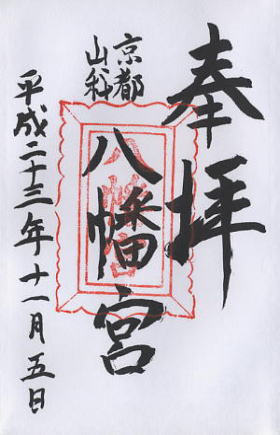 奉拝
京都
山科
八幡宮
八幡宮
平成二十三年十一月五日